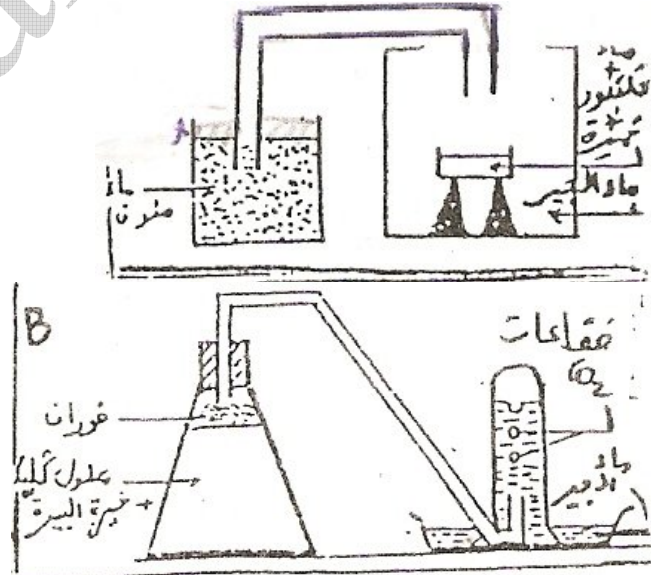 A
ماء
ملون
ماء
+
+
خميرة
ماء الجير
B
فقاعات
CO₂
فوران
محلول
خميرة البيرة
ماء
الجير